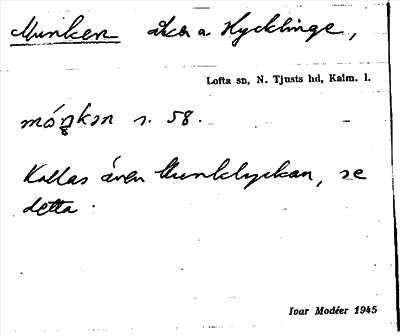 Munken åker a Hycklinge,
Lofta sn, N. Tjusts hd, Kalm. l.
måŋkən s. 58.
Kallas även Munklyckan, se
detta.
Ivar Modéer 1945